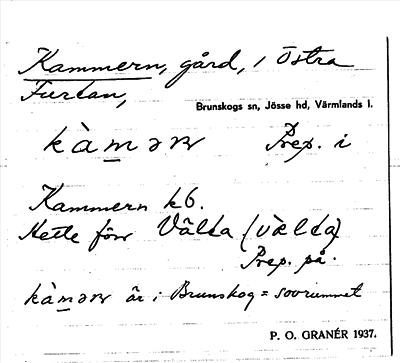 Kammern, gård, i Östra
Furtan,
Brunskogs sn, Jösse hd, Värmlands l.
kàmər Prep. i
Kammern k6.
Hette förr Välta (vælta)
Prep. på.
kàmər är i Brunskog = sovrummet
P. O. GRANÉR 1937.